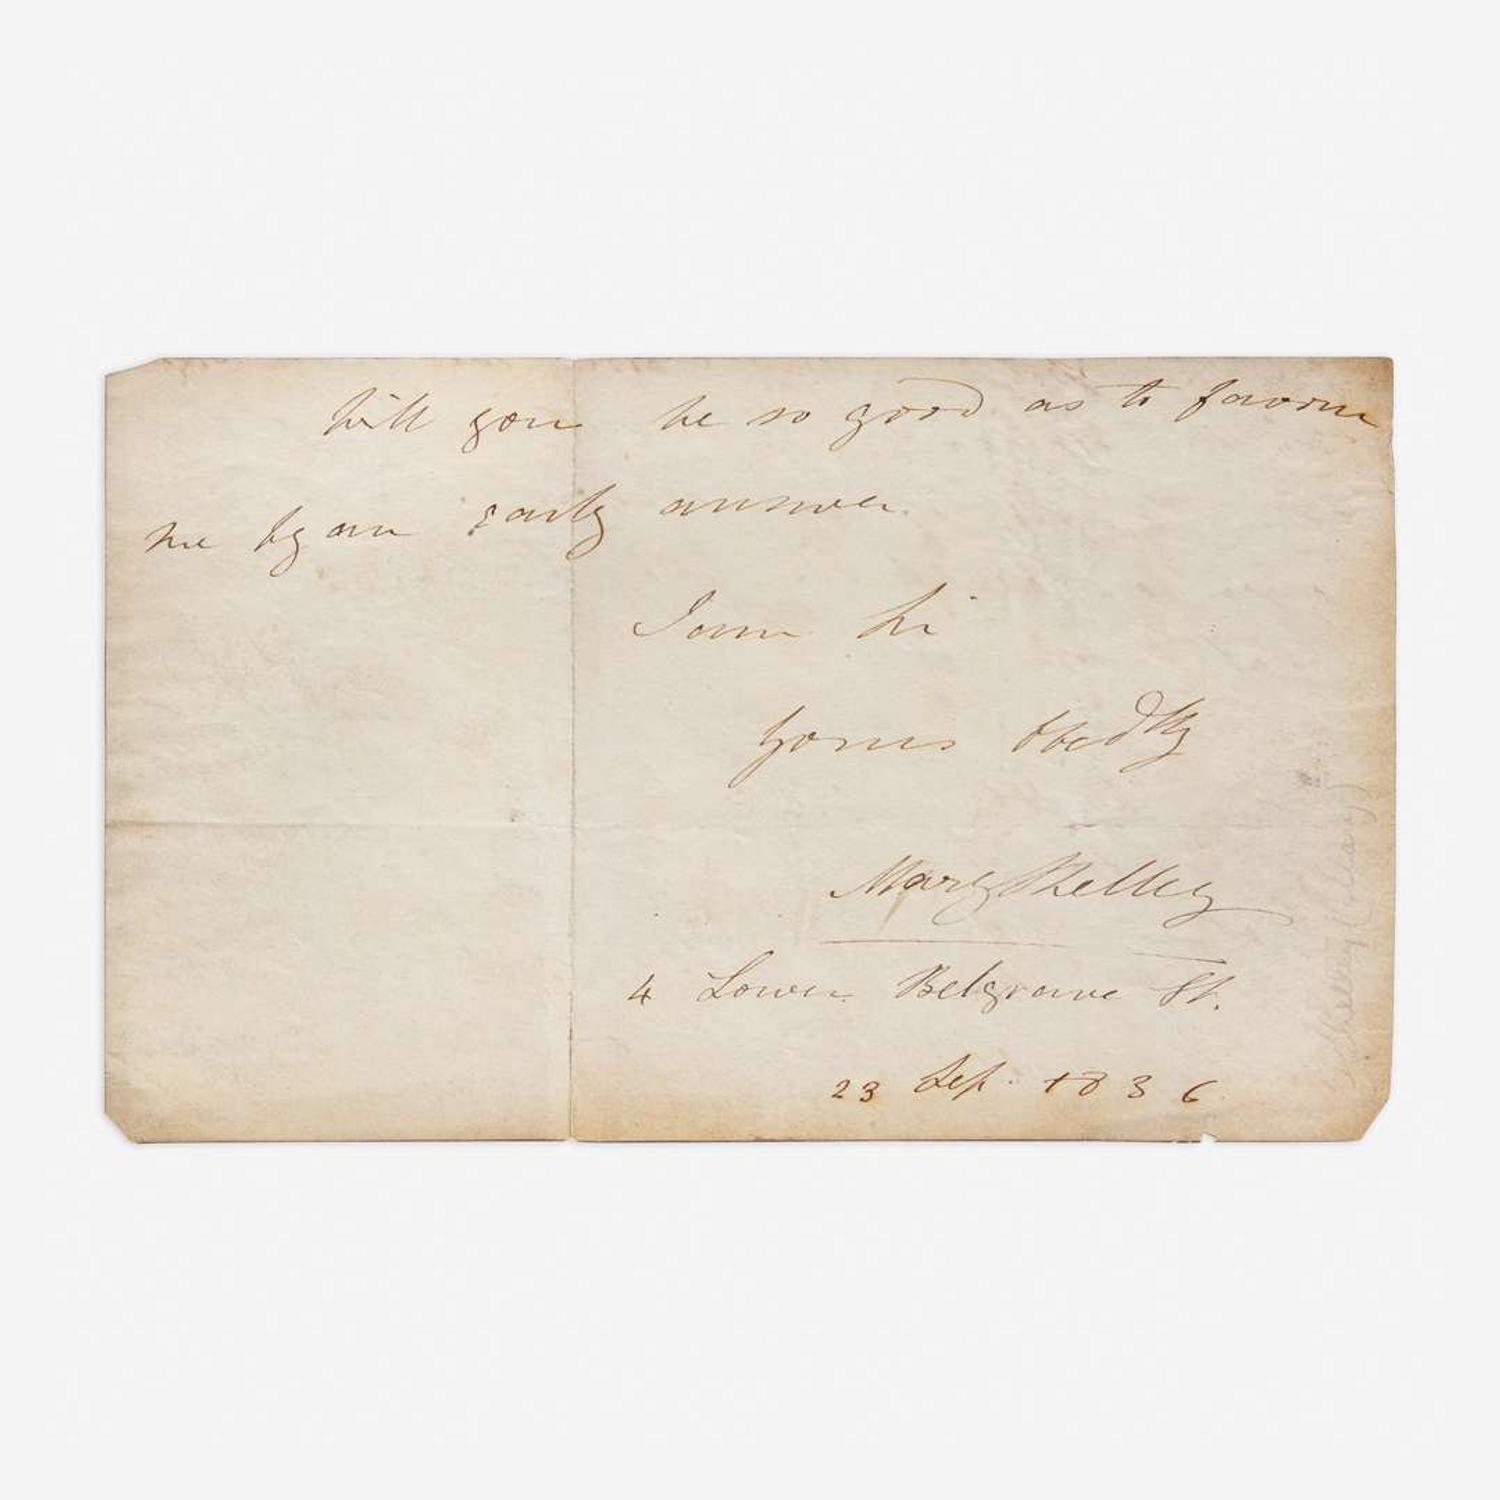 Will you be so good as to favour
me by an early answer.
I am Sir
Yours Obedtly
Mary Shelley
4 Lower Belgrave St.
23 Sep. 1836